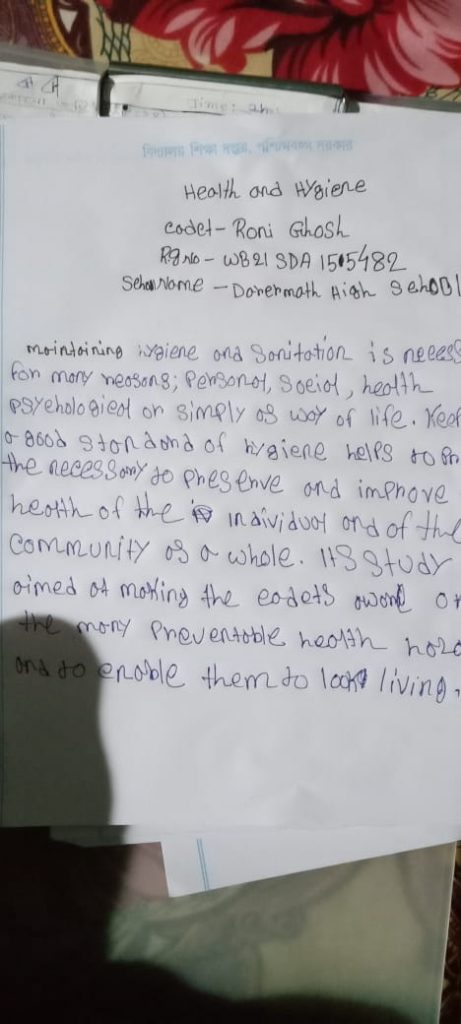 Time:
বিদ্যালয় শিক্ষা দপ্তর, পশ্চিমবঙ্গ সরকার
Health and Hygiene
cadet- Roni Ghosh
Rg No - WB21 SDA 1505482
School Name - Darermath High School
maintaining hygiene and Sanitation is necess
for many reasons; Personal, Social, health
psychological or simply as way of life. Keep
a good standard of hygiene helps to
the necessary to preserve and improve
health of the individual and of the
community as a whole. Its Study
aimed at making the cadets aware or
the many Preventable health haza
and to enable them to look living,